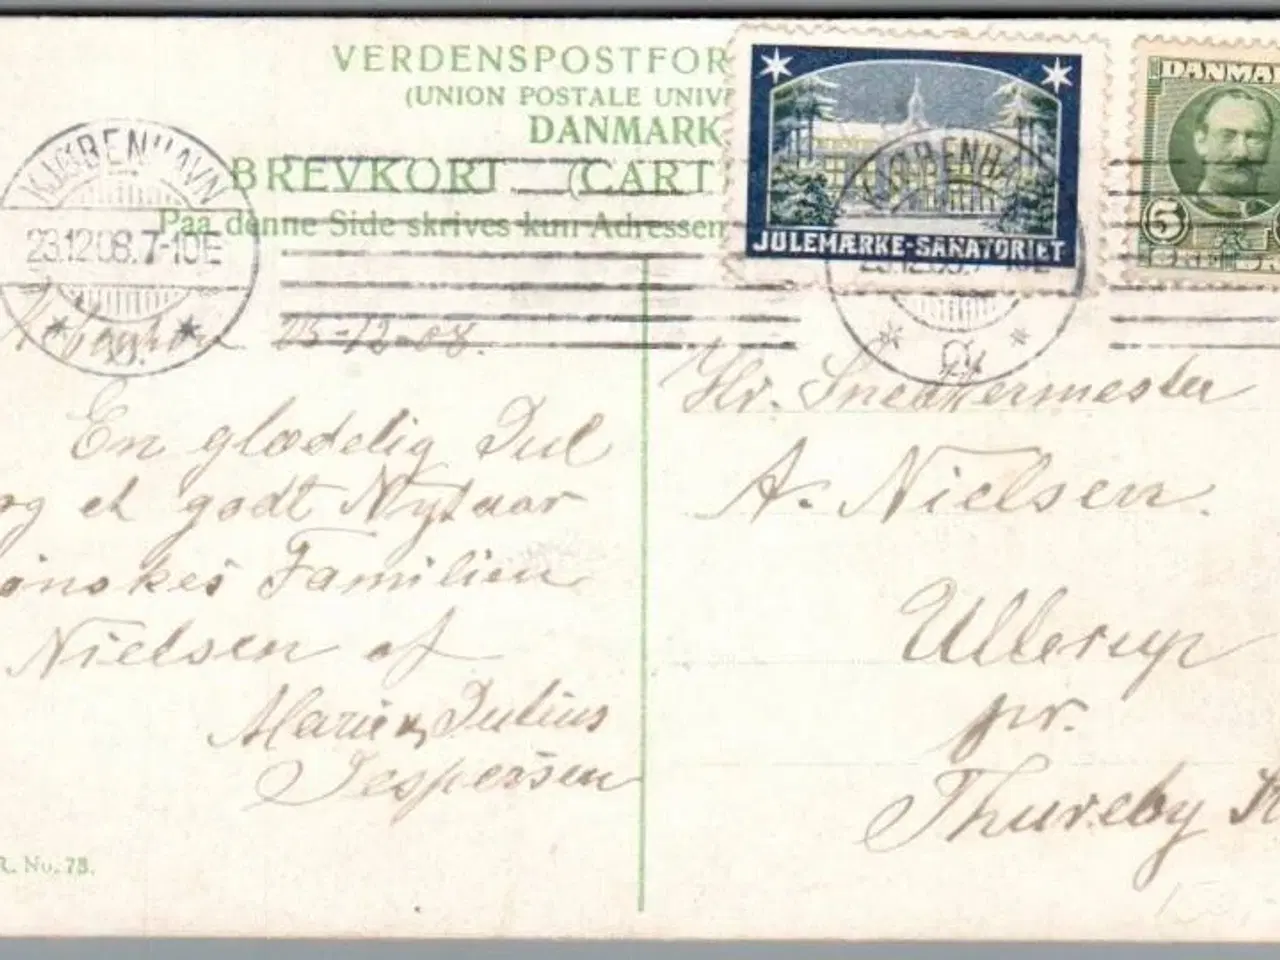 VERDENSPOSTFOR
(UNION POSTALE UNIV
DANMARK
BREVKORT (CART
Paa denne Side skrives kun Adressen
KJØBENHAVN
23.12.08.7-10E
JULEMÆRKE-SANATORIET
KJØBENHA
DANMA
5
23-12-08.
En glædelig Jul
og et godt Nytaar
ønskes Familien
Nielsen af
Marie & Julius
Jespersen
R. No. 78.
Hr. Snedkermester
A. Nielsen.
Ullerup
pr.
Thureby